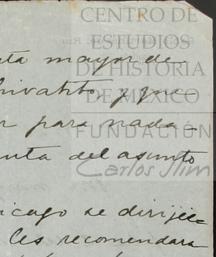 CENTRO DE
ESTUDIOS
DE HISTORIA
DE MÉXICO
FUNDACIÓN
Carlos Slim
mayor de
privatito, y que
para nada
cuenta del asunto
se dirijie
les recomendara